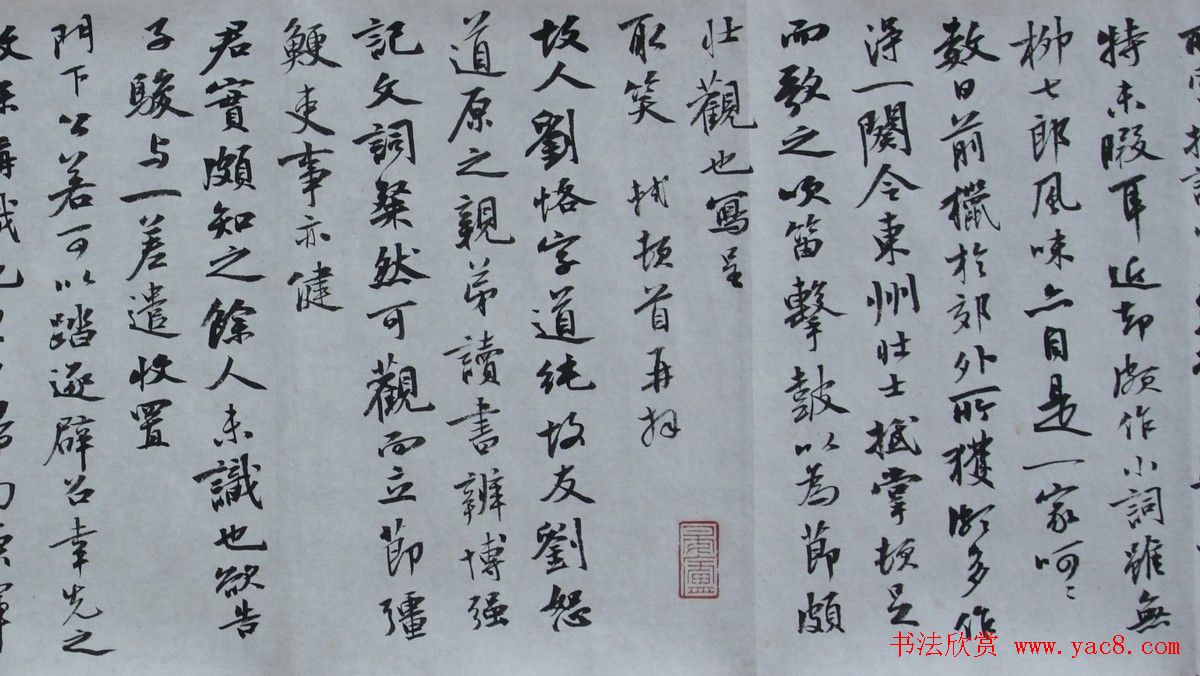 特未暇耳近却頗作小詞雖無
柳七郎風味亦自是一家呵〻
數日前獵於郊外所獲頗多作
得一闋令東州壯士抵掌頓足
而歌之吹笛擊鼓以為節頗
壯觀也寫呈
取笑 軾頓首再拜
故人劉恪字道純故友劉恕
道原之親弟讀書辨博强
記文詞粲然可觀而立節彊
鯁吏事亦健
君實頗知之餘人未識也欲告
子駿与一差遣收置
門下公若可以踏逐辟召幸先之
书法欣赏 www.yac8.com